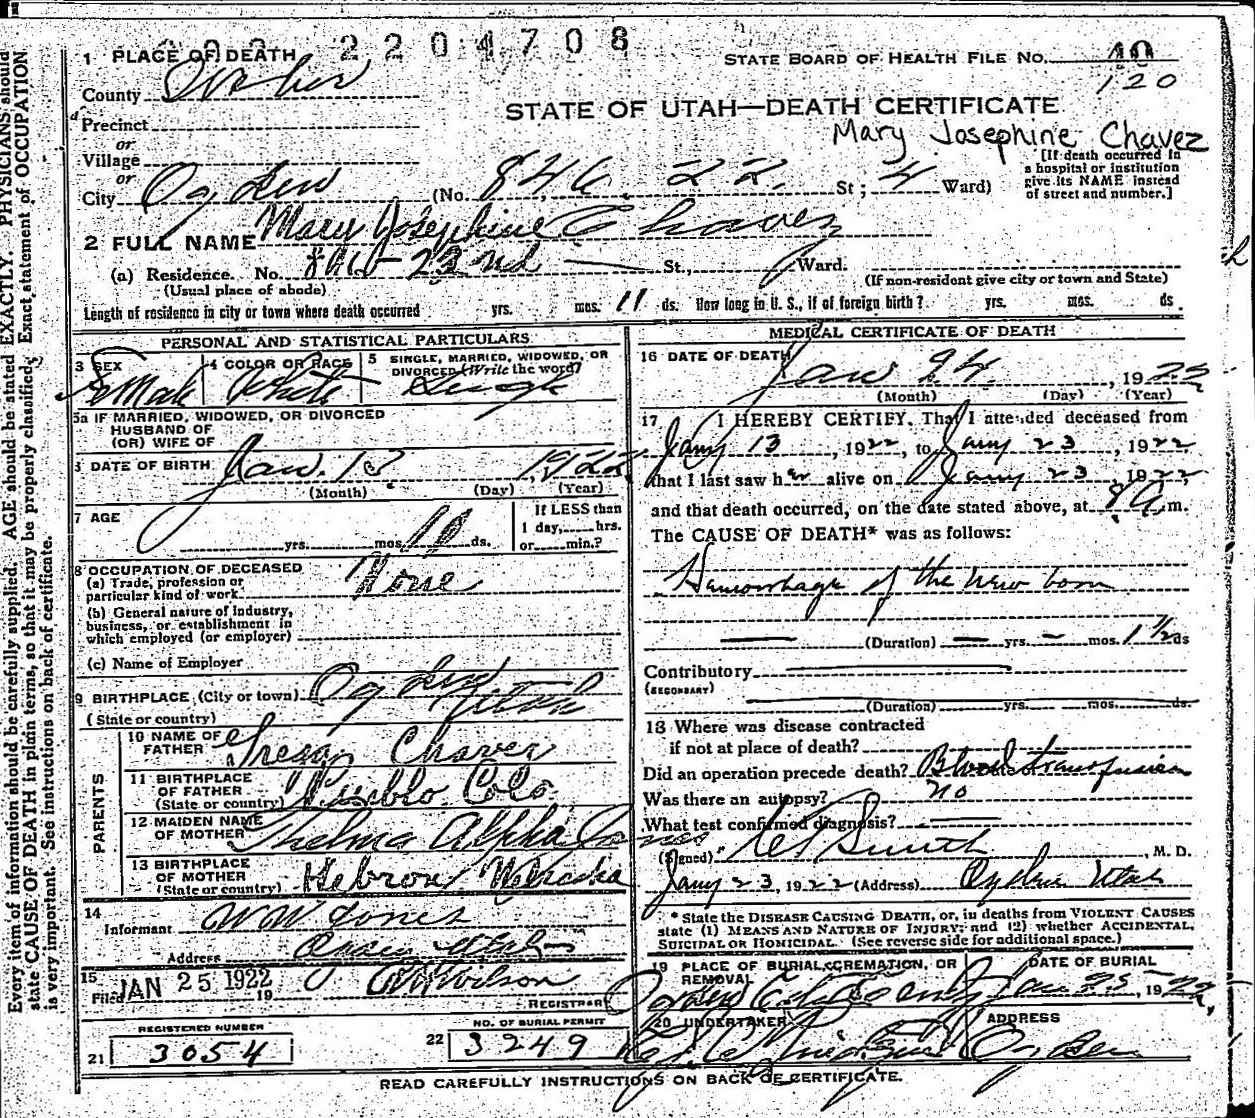 2204708
1 PLACE OF DEATH
STATE BOARD OF HEALTH FILE No. 10
120
County Weber
STATE OF UTAH—DEATH CERTIFICATE
Precinct
Mary Josephine Chavez
or
Village
or
City Ogden (No. 846 22. St; 4 Ward)
[If death occurred in a hospital or institution give its NAME instead of street and number.]
2 FULL NAME Mary Josephine Chavez
(a) Residence. No. 846-23nd St., Ward.
(Usual place of abode)
(If non-resident give city or town and State)
Length of residence in city or town where death occurred yrs. mos. 11 ds. How long in U. S., if of foreign birth? yrs. mos. ds.
PERSONAL AND STATISTICAL PARTICULARS
3 SEX
Female
4 COLOR OR RACE
White
5 SINGLE, MARRIED, WIDOWED, OR DIVORCED (Write the word)
Single
5a IF MARRIED, WIDOWED, OR DIVORCED
HUSBAND OF
(OR) WIFE OF
DATE OF BIRTH Jan. 13, 1922
(Month) (Day) (Year)
7 AGE
yrs. mos. 11 ds.
If LESS than
1 day, hrs.
or min.?
8 OCCUPATION OF DECEASED
(a) Trade, profession or
particular kind of work None
(b) General nature of industry,
business, or establishment in
which employed (or employer)
(c) Name of Employer
9 BIRTHPLACE (City or town) Ogden
(State or country) Utah
PARENTS
10 NAME OF
FATHER Chavez
11 BIRTHPLACE
OF FATHER
(State or country) Pueblo Colo
12 MAIDEN NAME
OF MOTHER Thelma Alpha Jones
13 BIRTHPLACE
OF MOTHER
(State or country) Hebron Nebraska
14
Informant WW Jones
Address Utah
15
Filed JAN 25 1922 19 Wilson
REGISTRAR
REGISTERED NUMBER
21 3054
NO. OF BURIAL PERMIT
22 3249
MEDICAL CERTIFICATE OF DEATH
16 DATE OF DEATH
Jan 24, 1922
(Month) (Day) (Year)
17 I HEREBY CERTIFY, That I attended deceased from
Jany 13, 1922, to Jany 23, 1922,
that I last saw her alive on Jany 23, 1922,
and that death occurred, on the date stated above, at 8 a. m.
The CAUSE OF DEATH* was as follows:
Hemorrhage of the new born
(Duration) yrs. mos. 1 ½ ds
Contributory
(SECONDARY)
(Duration) yrs. mos. ds.
18 Where was disease contracted
if not at place of death?
Did an operation precede death? Blood transfusion
Was there an autopsy? no
What test confirmed diagnosis?
(Signed) Smith, M. D.
Jany 23, 1922 (Address) Ogden Utah
* State the DISEASE CAUSING DEATH, or, in deaths from VIOLENT CAUSES
state (1) MEANS AND NATURE OF INJURY; and (2) whether ACCIDENTAL,
SUICIDAL OR HOMICIDAL. (See reverse side for additional space.)
19 PLACE OF BURIAL, CREMATION, OR
REMOVAL
Ogden City Cemt
DATE OF BURIAL
Jan 25, 1922,
20 UNDERTAKER
ADDRESS
Ogden
READ CAREFULLY INSTRUCTIONS ON BACK OF CERTIFICATE.
Every item of information should be carefully supplied. AGE should be stated EXACTLY. PHYSICIANS should
state CAUSE OF DEATH in plain terms, so that it may be properly classified. Exact statement of OCCUPATION
is very important. See instructions on back of certificate.